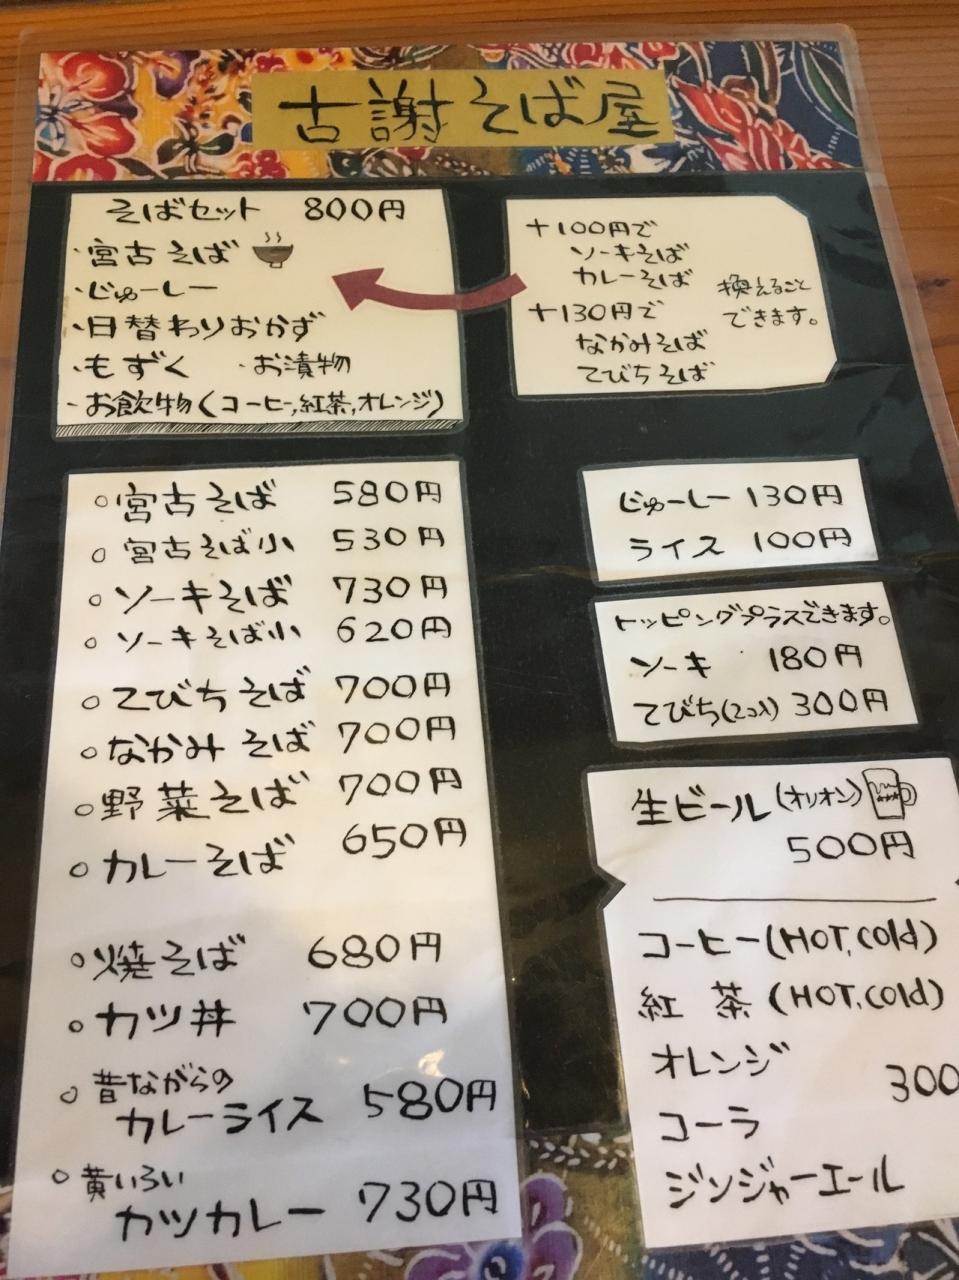 古謝そば屋
そばセット 800円
・宮古そば
・じゅーしー
・日替わりおかず
・もずく ・お漬物
・お飲物(コーヒー,紅茶,オレンジ)
+100円で
ソーキそば
カレーそば
+130円で
なかみそば
てびちそば
換えること
できます。
○宮古そば 580円
○宮古そば小 530円
○ソーキそば 730円
○ソーキそば小 620円
○てびちそば 700円
○なかみそば 700円
○野菜そば 700円
○カレーそば 650円
○焼そば 680円
○カツ丼 700円
○昔ながらの
カレーライス 580円
○黄いろい
カツカレー 730円
じゅーしー 130円
ライス 100円
トッピングプラスできます。
ソーキ 180円
てびち(2コ入) 300円
生ビール(オリオン)
500円
コーヒー(HOT,Cold)
紅茶(HOT,Cold)
オレンジ
300
コーラ
ジンジャーエール